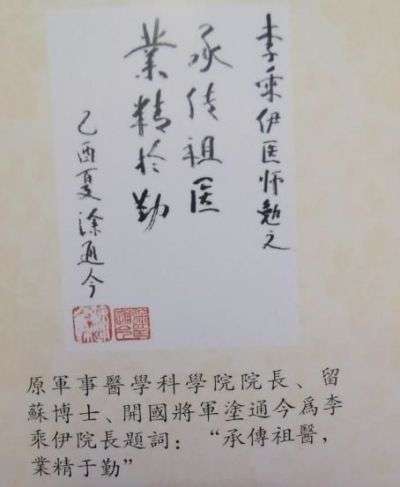 李乘伊医师勉之
承传祖医
業精於勤
乙酉夏涂通今
原軍事醫學科學院院長、留
蘇博士、開國將軍塗通今爲李
乘伊院長題詞：“承傳祖醫，
業精于勤”